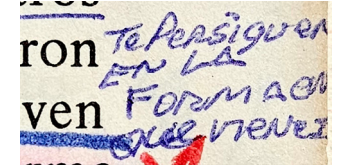 ros
ron
ven
Te Persiguen
EN LA
FORMA EN
QUE VIENEZ